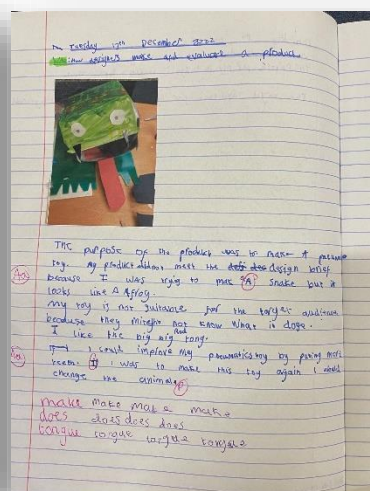 Tuesday 13th December 2022
how designers make and evaluate a product
THE purpose of the product was to make A pneumatic
toy. my product didnot meet the design brief
because I was trying to mak A snake but it
looks like A frog.
my toy is not suitable for the target audience
because they mite not know What it dose.
I like the big big red tong.
I could improve my pneumatics toy by puting more
teeth. If I was to make this toy again I would
change the animal
make make make make
does does does does
tongue tongue tongue tongue